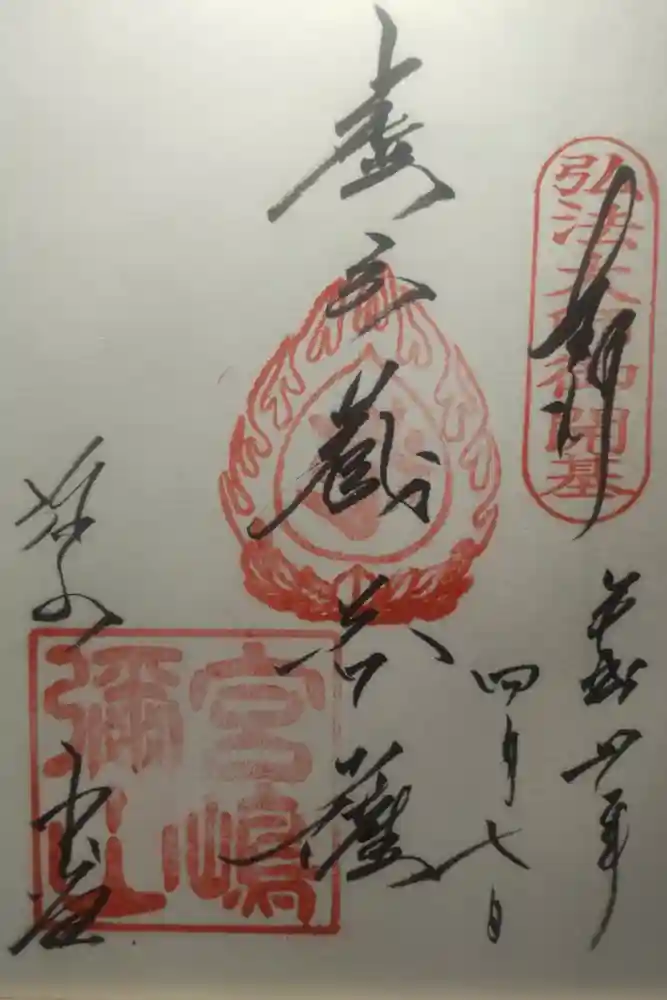 弘法大師御開基
奉拝
平成 年
四月七日
虚空蔵菩薩
弥山
本堂
宮嶋
彌山